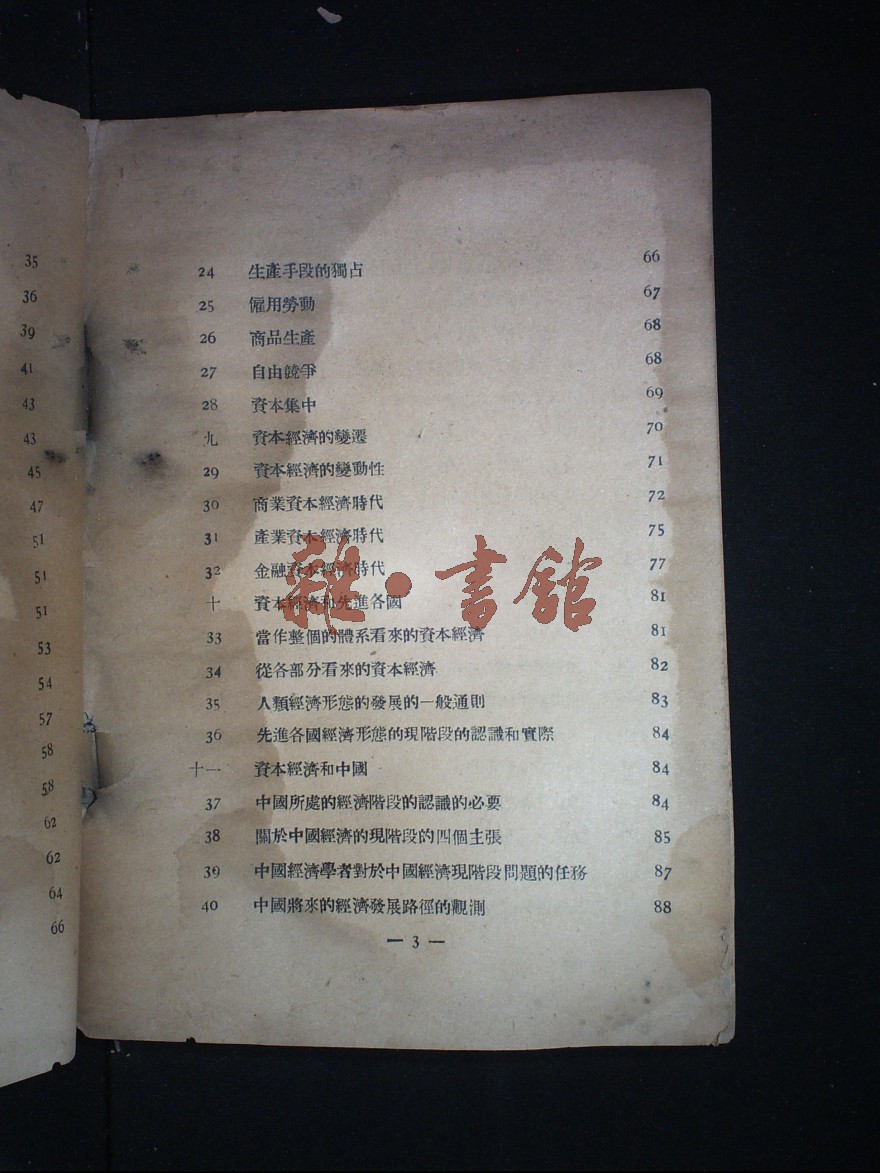 35
36
39
41
43
43
45
47
51
51
51
53
54
57
58
58
62
62
64
66
24 生產手段的獨占 66
25 僱用勞動 67
26 商品生產 68
27 自由競爭 68
28 資本集中 69
九 資本經濟的變遷 70
29 資本經濟的變動性 71
30 商業資本經濟時代 72
31 產業資本經濟時代 75
32 金融資本經濟時代 77
十 資本經濟和先進各國 81
33 當作整個的體系看來的資本經濟 81
34 從各部分看來的資本經濟 82
35 人類經濟形態的發展的一般通則 83
36 先進各國經濟形態的現階段的認識和實際 84
十一 資本經濟和中國 84
37 中國所處的經濟階段的認識的必要 84
38 關於中國經濟的現階段的四個主張 85
39 中國經濟學者對於中國經濟現階段問題的任務 87
40 中國將來的經濟發展路徑的觀測 88
— 3 —
雜·書館